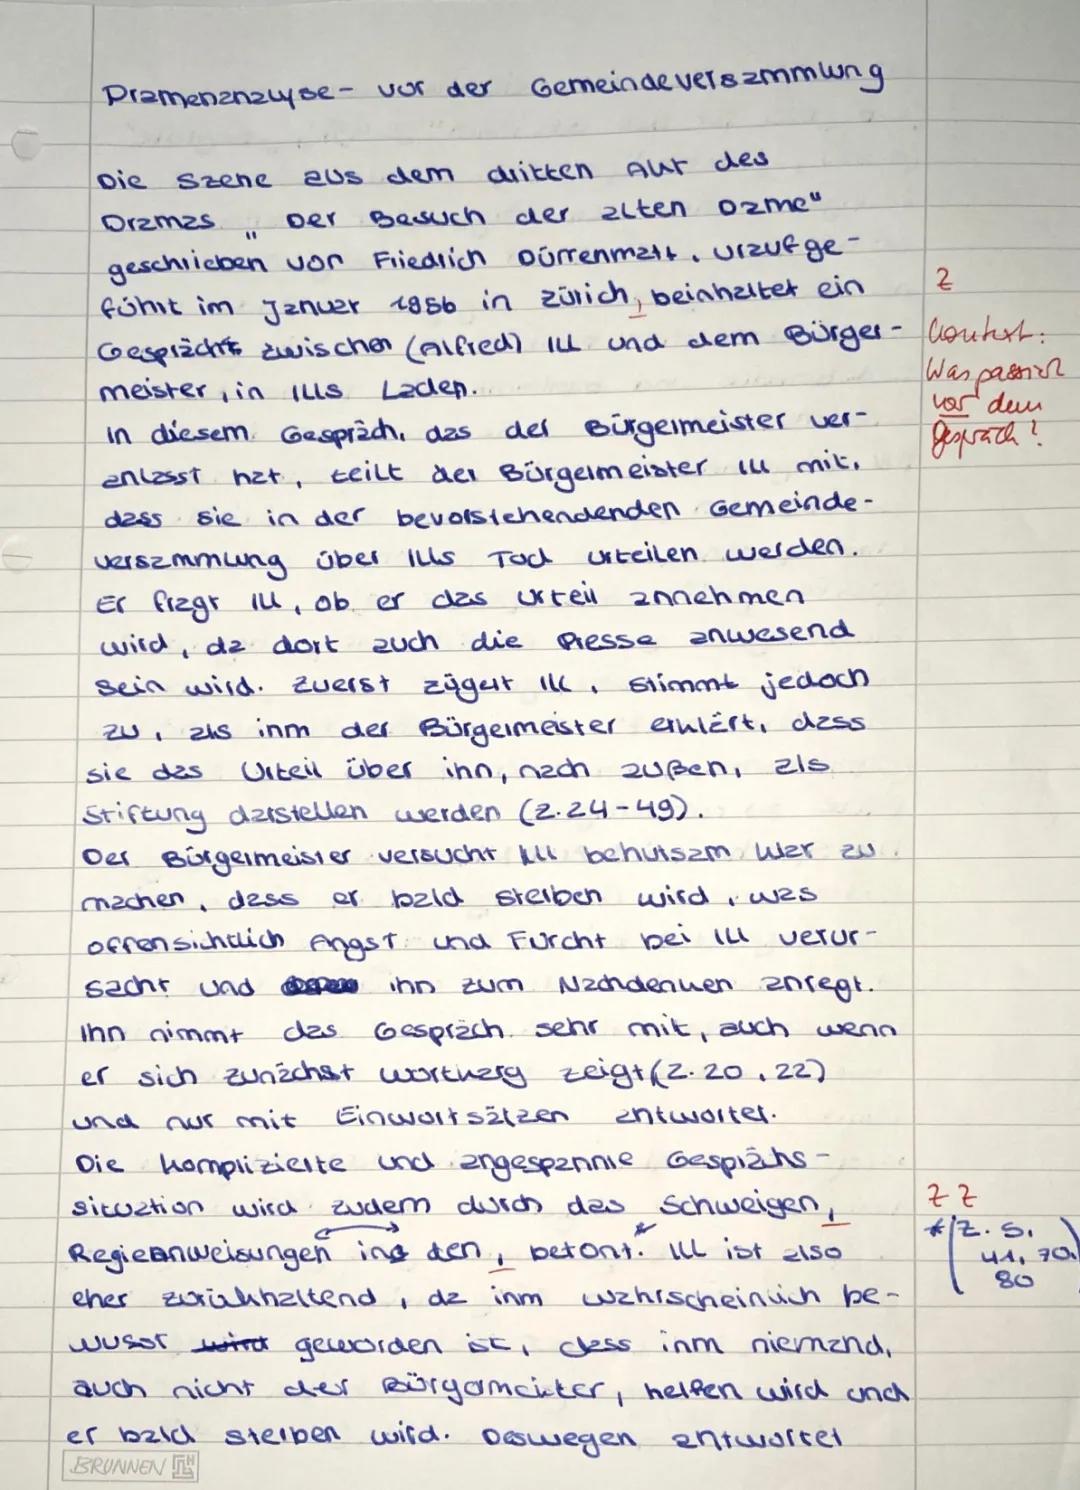 Dramenanalyse - vor der Gemeindeversammlung
Die Szene aus dem dritten Akt des
Dramas "Der Besuch der alten Dame"
geschrieben von Friedrich Dürrenmatt, uraufge-
führt im Januar 1956 in Zürich, beinhaltet ein
Z
Gespräch zwischen (Alfred) Ill und dem Bürger-
Kontext:
meister, in Ills Laden.
Was passiert
vor dem
In diesem Gespräch, das der Bürgermeister ver-
Gespräch?
anlasst hat, teilt der Bürgermeister Ill mit,
dass sie in der bevorstehendenden Gemeinde-
versammlung über Ills Tod urteilen werden.
Er fragt Ill, ob er das Urteil annehmen
wird, da dort auch die Presse anwesend
sein wird. Zuerst zögert Ill, stimmt jedoch
zu, als ihm der Bürgermeister erklärt, dass
sie das Urteil über ihn, nach außen, als
Stiftung darstellen werden (Z.24-49).
Der Bürgermeister versucht Ill behutsam klar zu
machen, dass er bald sterben wird, was
offensichtlich Angst und Furcht bei Ill verur-
sacht und ihn zum Nachdenken anregt.
Ihn nimmt das Gespräch sehr mit, auch wenn
er sich zunächst wortkarg zeigt (Z.20, 22)
und nur mit Einwortsätzen antwortet.
Die komplizierte und angespannte Gesprächs-
situation wird zudem durch das Schweigen,
Z Z
Regieanweisungen in den, betont.* Ill ist also
*(Z. S.
41, 70,
80
eher zurückhaltend, da ihm wahrscheinlich be-
wusst wird geworden ist, dass ihm niemand,
auch nicht der Bürgermeister, helfen wird und
er bald sterben wird. Deswegen antwortet
BRUNNEN